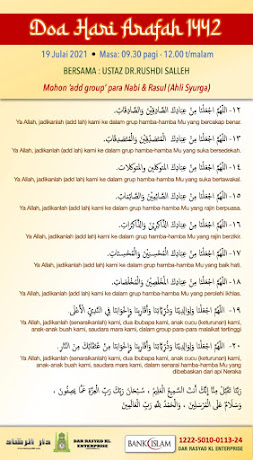 Doa Hari Arafah 1442
19 Julai 2021 • Masa: 09.30 pagi - 12.00 t/malam
BERSAMA : USTAZ DR.RUSHDI SALLEH
Mohon 'add group' para Nabi & Rasul (Ahli Syurga)
١٢- اللَّهُمَّ اجْعَلْنَا مِنْ عِبَادِكَ الصَّادِقِيْنَ وَالصَّادِقَاتِ.
Ya Allah, jadikanlah (add lah) kami ke dalam grup hamba-hamba Mu yang bercakap benar.
١٣- اللَّهُمَّ اجْعَلْنَا مِنْ عِبَادِكَ الْمُتَصَدِّقِيْنَ وَالْمُتَصَدِّقَاتِ.
Ya Allah, jadikanlah (add lah) kami ke dalam grup hamba-hamba Mu yang suka bersedekah.
١٤- اللَّهُمَّ اجْعَلْنَا مِنْ عِبَادِكَ الْمتَوَكِّلِيْنَ وَالمتَوَكِّلَات.
Ya Allah, jadikanlah (add lah) kami ke dalam grup hamba-hamba Mu yang suka bertawakal.
١٥- اللَّهُمَّ اجْعَلْنَا مِنْ عِبَادِكَ الصَّائِمِيْنَ وَالصَّائِمَاتِ.
Ya Allah, jadikanlah (add lah) kami ke dalam grup hamba-hamba Mu yang rajin berpuasa.
١٦- اللَّهُمَّ اجْعَلْنَا مِنْ عِبَادِكَ الذَّاكِرِيْنَ وَالذَّاكِرَاتِ.
Ya Allah, jadikanlah (add lah) kami ke dalam grup hamba-hamba Mu yang rajin berzikir.
١٧- اللَّهُمَّ اجْعَلْنَا مِنْ عِبَادِكَ الْمُحْسِنِيْنَ وَالْمُحْسِنَاتِ.
Ya Allah, jadikanlah (add lah) kami ke dalam grup hamba-hamba Mu yang baik hati.
١٨- اللَّهُمَّ اجْعَلْنَا مِنْ عِبَادِكَ الْمُخْلَصِيْنَ وَالْمُخْلَصَاتِ.
Ya Allah, jadikanlah (add lah) kami ke dalam grup hamba-hamba Mu yang perolehi ikhlas.
١٩- اللَّهُمَّ اجْعَلْنَا وَلِوَالِدِيْنَا وَذُرِّيَّاتِنَا وَأَقَارِبِنَا وَإِخْوَانِنَا فِي النَّدِيِّ الْأَعْلَى.
Ya Allah, jadikanlah (senaraikanlah) kami, dua ibubapa kami, anak cucu (keturunan) kami,
anak-anak buah kami, saudara mara kami, dalam group para-para malaikat tertinggi
٢٠- اللَّهُمَّ اجْعَلْنَا وَلِوَالِدِيْنَا وَذُرِّيَّاتِنَا وَأَقَارِبِنَا وَإِخْوَانِنَا مِنْ عُتَقَائِكَ مِنَ النَّارِ.
Ya Allah, jadikanlah (senaraikanlah) kami, dua ibubapa kami, anak cucu (keturunan) kami,
anak-anak buah kami, saudara mara kami, dalam senarai hamba-hamba Mu yang
dibebaskan dari api Neraka
رَبَّنَا تَقَبَّلْ مِنَّا إِنَّكَ أَنْتَ السَّمِيْعُ الْعَلِيْمُ ، سُبْحَانَ رَبِّكَ رَبِّ الْعِزَّةِ عَمَّا يَصِفُوْنَ ،
وَسَلَامٌ عَلَى الْمُرْسَلِيْنَ ، وَالْحَمْدُ لِلَّهِ رَبِّ الْعَالَمِيْنَ
DAR RASYAD KL
ENTERPRISE
BANK ISLAM
1222-5010-0113-24
DAR RASYAD KL ENTERPRISE